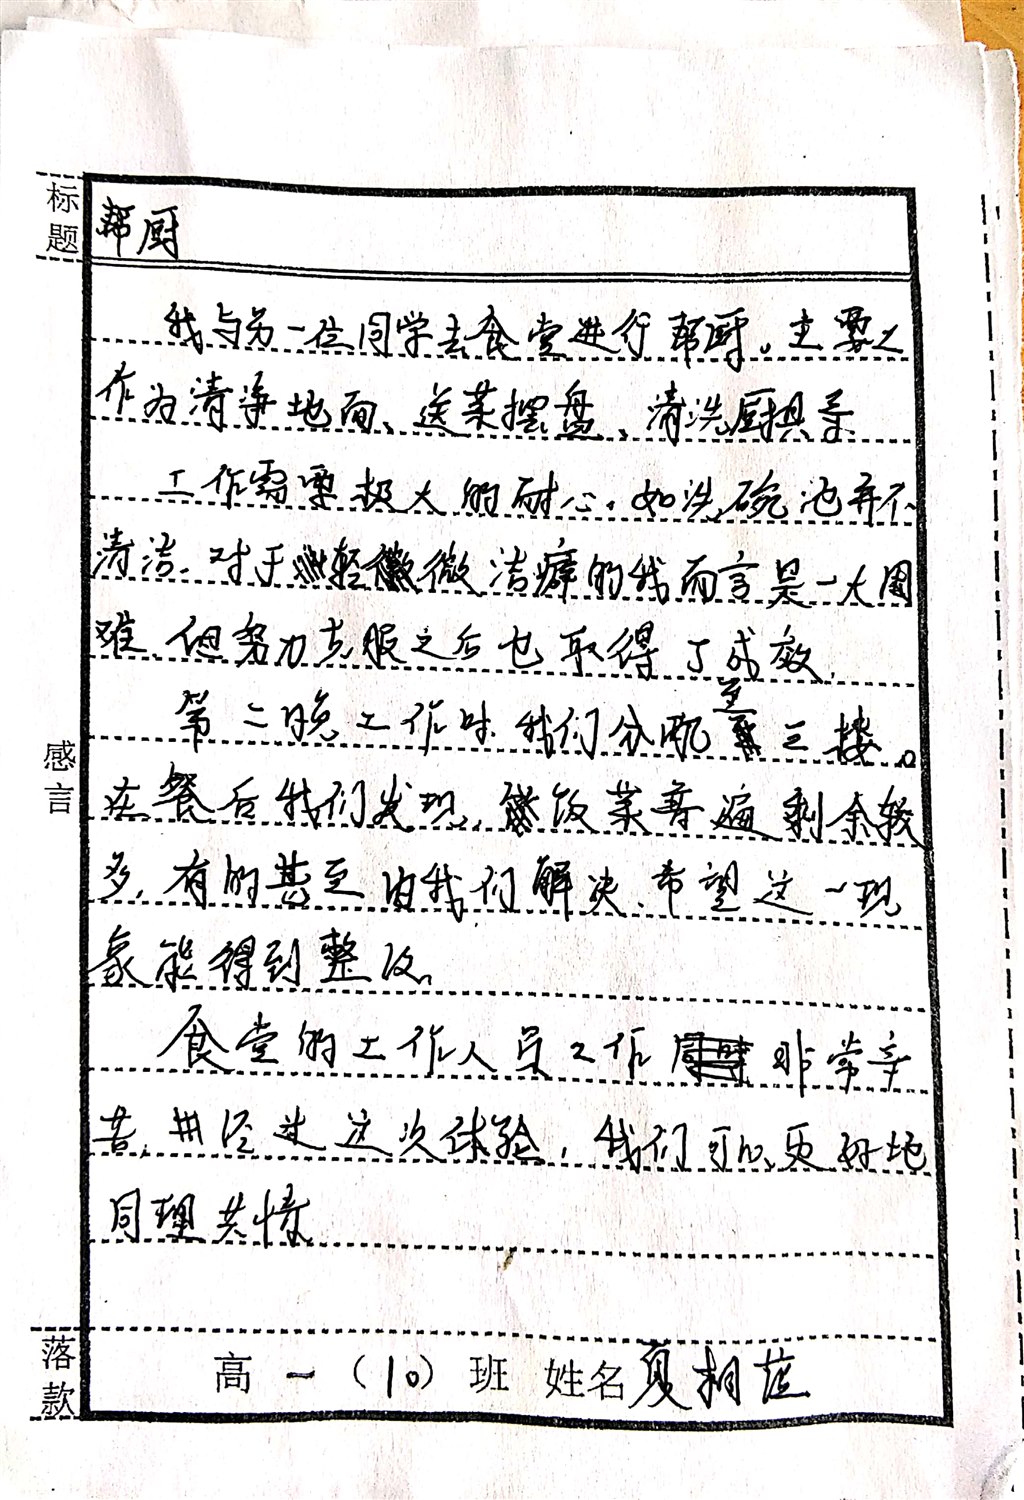 标题
帮厨
我与另一位同学去食堂进行帮厨。主要工
作为清海地面、送菜摆盘、清洗厨具等
工作需要极大的耐心。如洗碗池并不
清洁,对于轻微微洁癖的我而言是一大困
难,但努力克服之后也取得了成效,
第二晚工作时,我们分配至三楼。
在餐后我们发现,饭菜普遍剩余较
多,有的甚至由我们解决,希望这一现
象能得到整改。
感言
食堂的工作人员工作非常辛
苦,经过这次体验,我们可以更好地
同理共情
落款
高一(10)班 姓名夏相